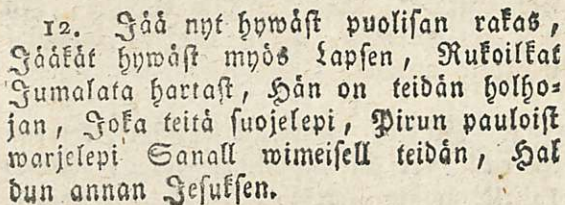 12. Jää nyt hywäst puolisan rakas,
Jääkät hywäst myös Lapsen, Rukoilkat
Jumalata hartast, Hän on teidän holho-
jan, Joka teitä suojelepi, Pirun pauloist
warjelepi Sanall wimeisell teidän, Hal
dun annan Jesuksen.